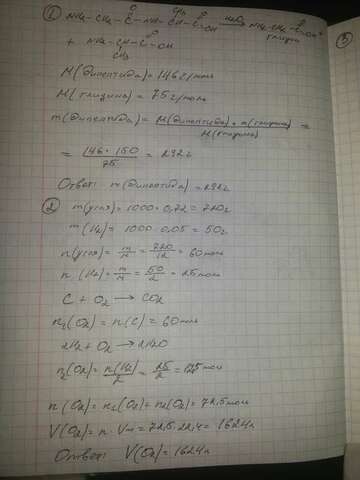 ① NH₂-CH₂-C(=O)-NH-CH(CH₃)-C(=O)-OH →(H₂O) NH₂-CH₂-C(=O)-OH +
глицин
+ NH₂-CH(CH₃)-C(=O)-OH
M(дипептида)=146 г/моль
M(глицина)=75 г/моль
m(дипептида)= M(дипептида)·m(глицина)/M(глицина) =
= 146·150/75 = 292г
Ответ: m(дипептида)=292г
② m(угля)=1000·0,72=720г
m(H₂)= 1000·0,05=50г
n(угля)= m/M = 720/12 = 60моль
n(H₂)= m/M = 50/2 = 25моль
C + O₂ → CO₂
n₁(O₂) = n(C) = 60моль
2H₂+O₂ → 2H₂O
n₂(O₂)= n(H₂)/2 = 25/2 = 12,5 моль
n(O₂)= n₁(O₂)+n₂(O₂)=72,5моль
V(O₂)= n·Vm=72,5·22,4=1624л
Ответ: V(O₂)=1624л
③